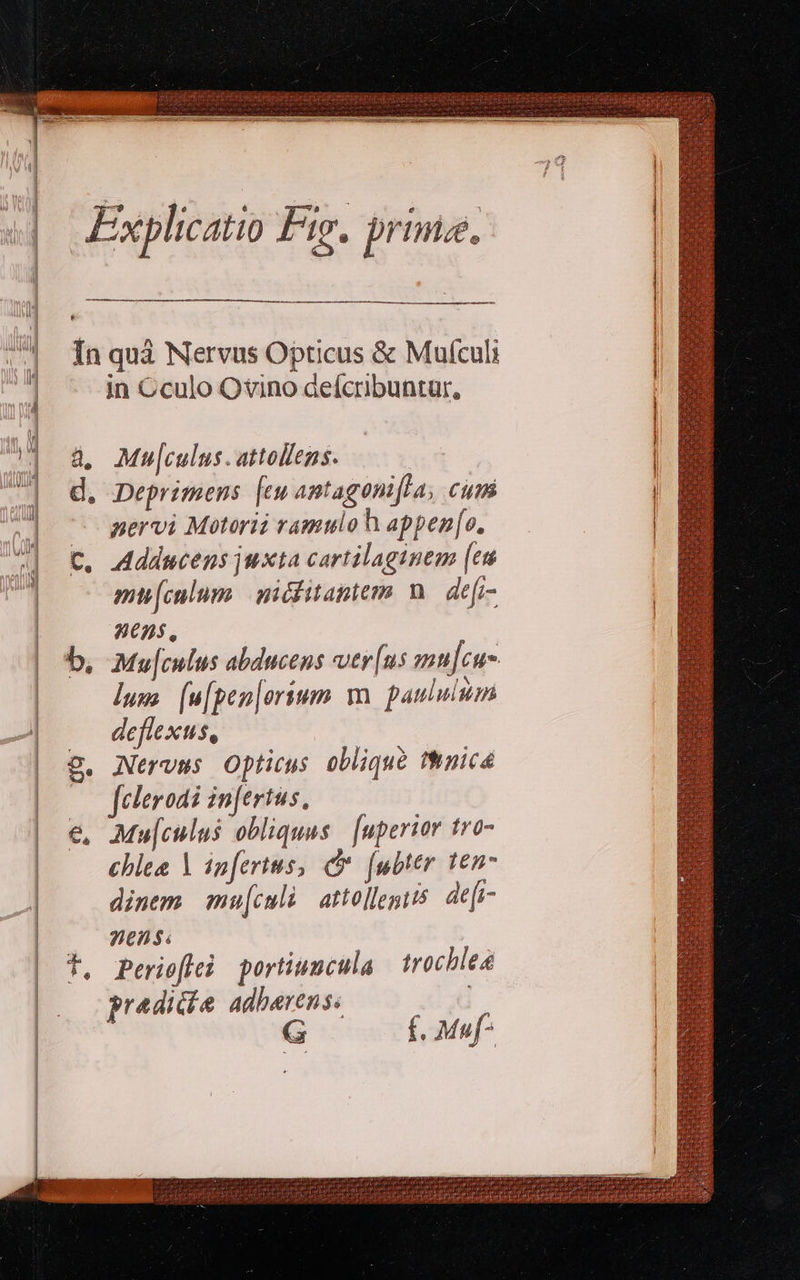 79
Explicatio Fig. primæ.
In quâ Nervus Opticus & Muſculi
in Oculo Ovino deſcribuntur,
a, Muſculus attollens.
d, Deprimens ſeu antagoniſta, cum
nervi Motorii ramulo h appenſo.
c, Adducens juxta cartilaginem ſeu
muſculum nictitantem n deſi-
nens,
b, Muſculus abducens verſus muſcu-
lum ſuſpenſorium m paululùm
deflexus,
g. Nervus Opticus obliquè tunicæ
ſclerodi inſertus,
e, Muſculus obliquus ſuperior tro-
chleæ l inſertus, & ſubter ten-
dinem muſculi attollentis deſi-
nens.
t, Perioſtei portiuncula trochleæ
prædictæ adhærens.
G f. Muſ-